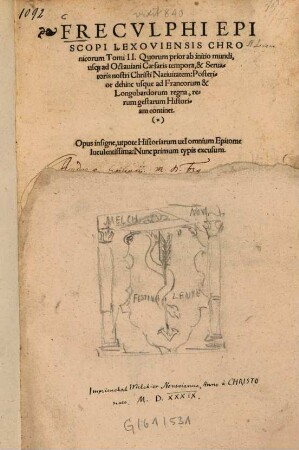 1092
vixit 840
FRECVLPHI EPI
SCOPI LEXOVIENSIS CHRO
nicorum Tomi II. Quorum prior ab initio mundi,
usq; ad Octauiani Cæsaris tempora, & Serua-
toris nostri Christi Natiuitatem: Posteri-
or dehinc usque ad Francorum &
Longobardorum regna, re-
rum gestarum Histori-
am continet.
(*)
Opus insigne, utpote Historiarum uel omnium Epitome
luculentissima: Nunc primum typis excusum.
MELCH NOV.
FESTINA LENTE
Imprimebat Melchior Nouesianus, Anno à CHRISTO
nato. M. D. XXXIX.
G164153A